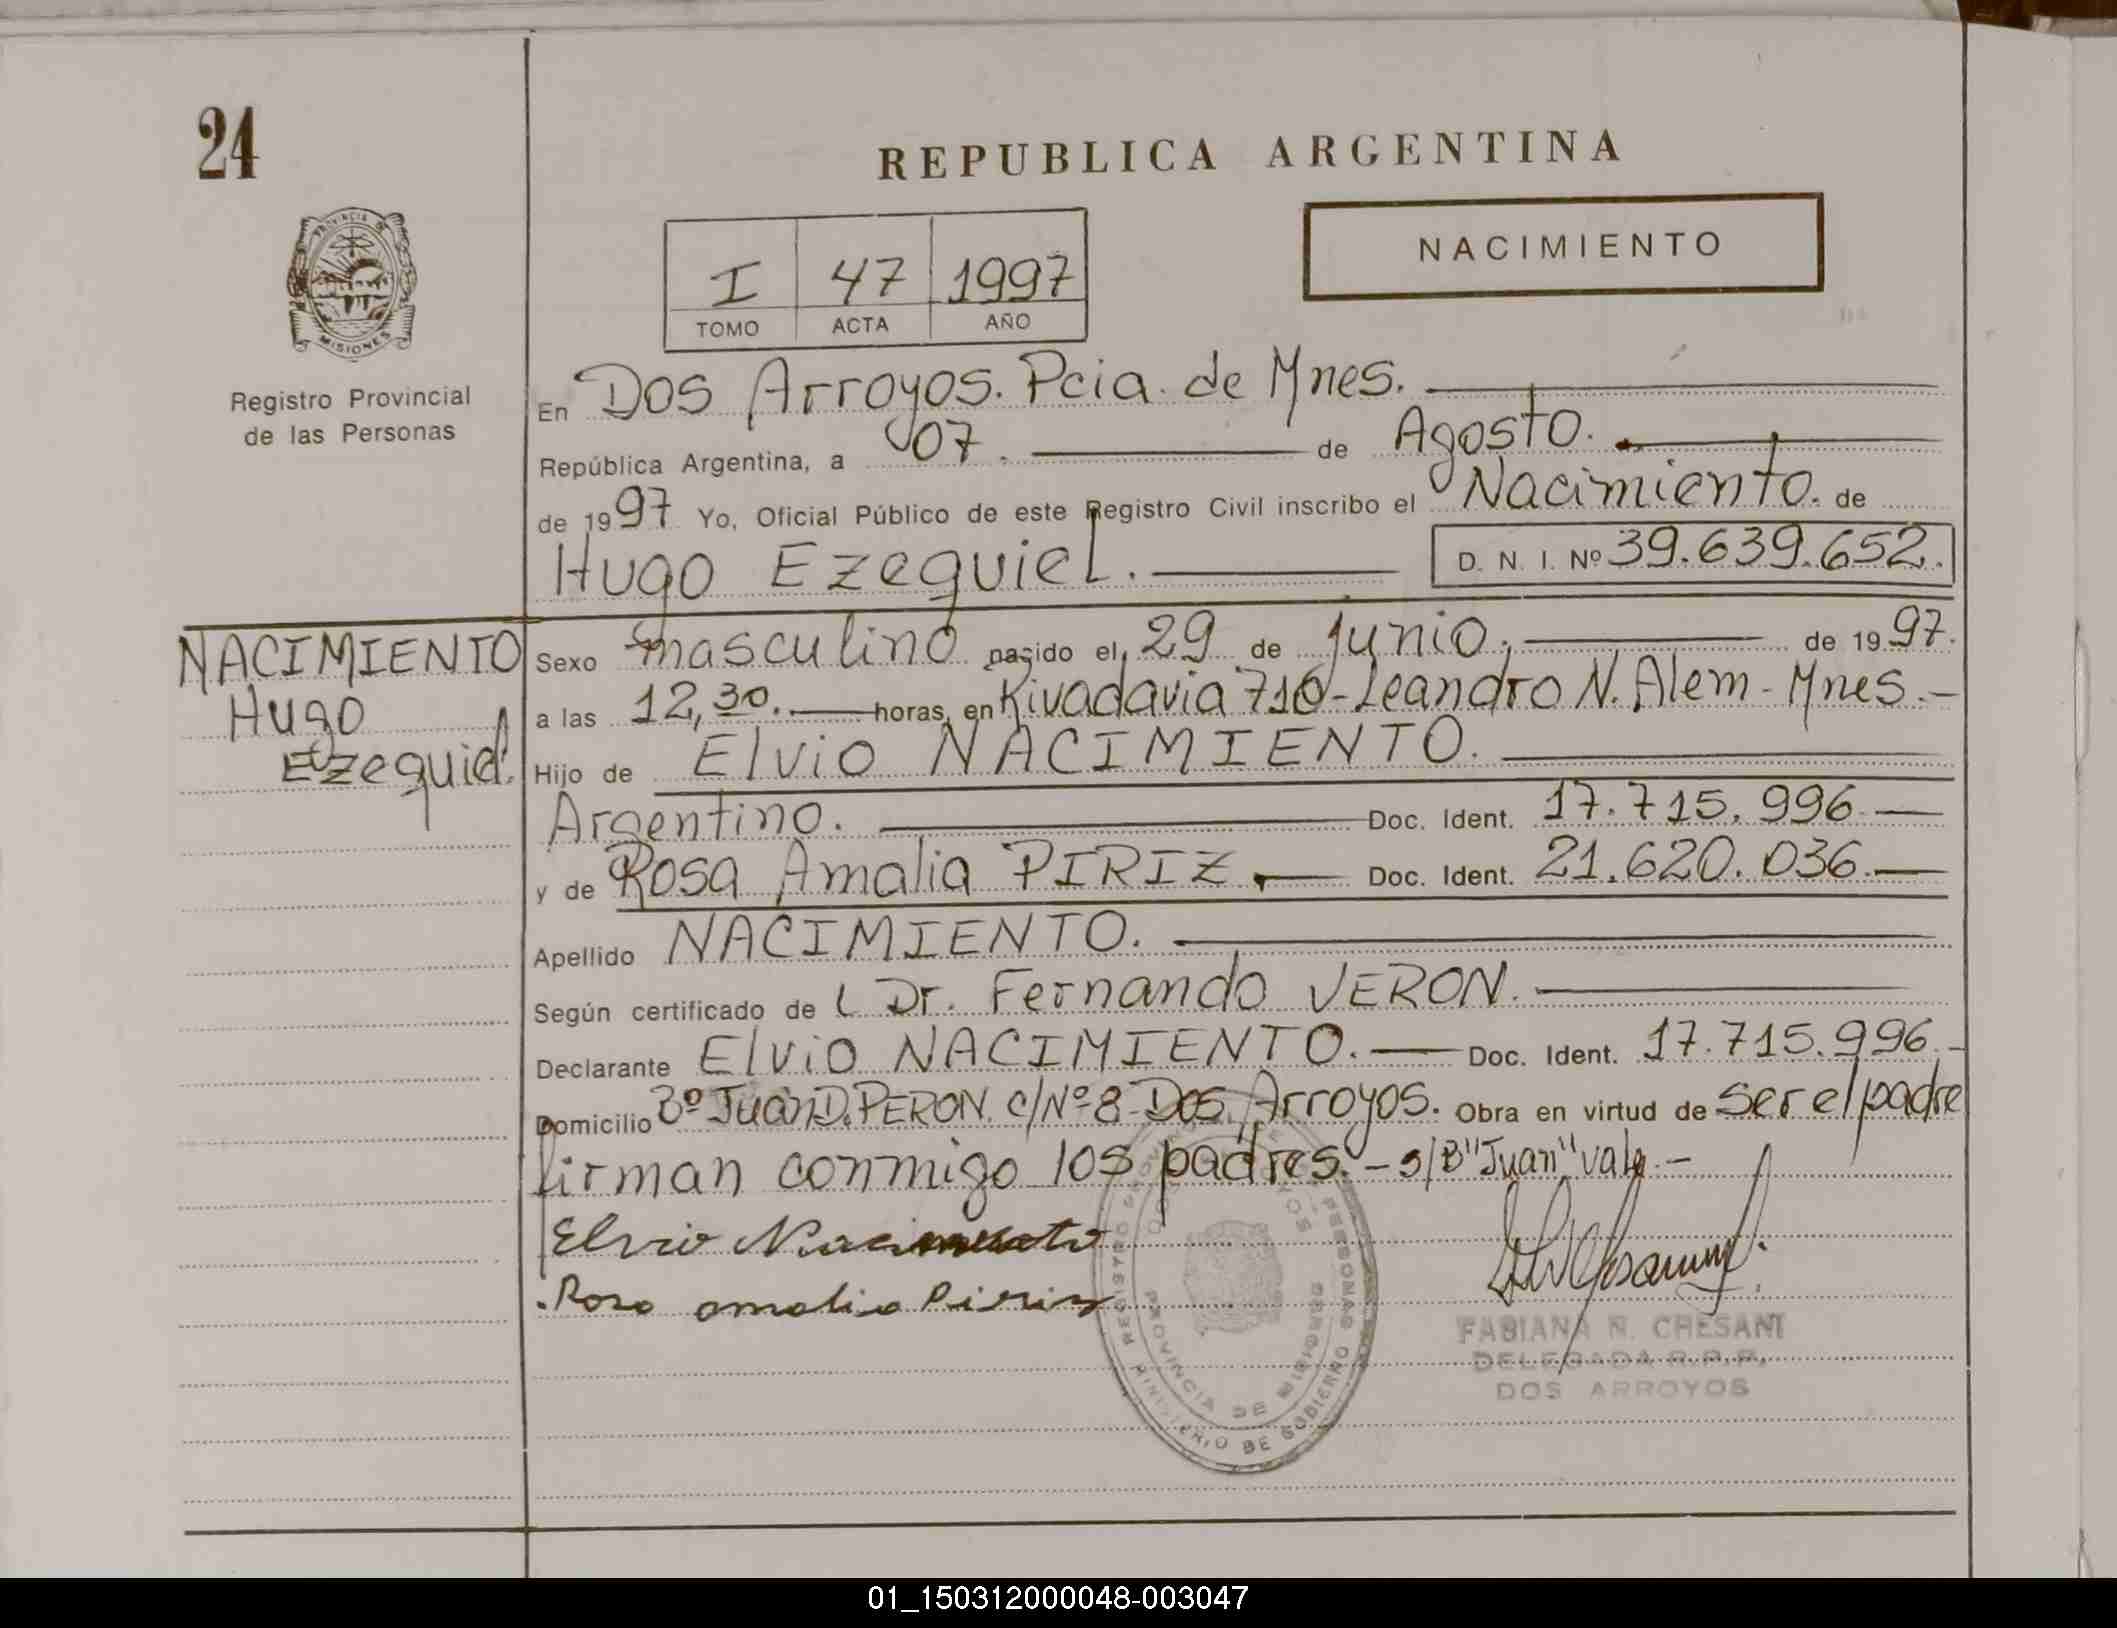 24
REPUBLICA ARGENTINA
NACIMIENTO
I 47 1997
TOMO ACTA AÑO
PROVINCIA DE
MISIONES
Registro Provincial
de las Personas
En Dos Arroyos. Pcia. de Mnes.
República Argentina, a 07. de Agosto.
de 1997 Yo, Oficial Público de este Registro Civil inscribo el Nacimiento. de
Hugo Ezequiel. D. N. I. Nº 39.639.652.
NACIMIENTO
Hugo
Ezequiel.
Sexo masculino nacido el 29 de junio. de 1997.
a las 12,30. horas, en Rivadavia 710-Leandro N. Alem - Mnes.-
Hijo de Elvio NACIMIENTO.
Argentino. Doc. Ident. 17.715.996.
y de Rosa Amalia PIRIZ. Doc. Ident. 21.620.036.
Apellido NACIMIENTO.
Según certificado de l Dr. Fernando VERON.
Declarante Elvio NACIMIENTO. Doc. Ident. 17.715.996.-
Domicilio Bº Juan D. PERON. c/Nº 8-Dos Arroyos. Obra en virtud de ser el padre
firman conmigo los padres.- s/B"Juan"vale.-
Elvio Nacimiento
Rosa amalia Piriz
FABIANA N. CHESANI
DELEGADA R.P.P.
DOS ARROYOS
REGISTRO PERSONAS
PROVINCIA DE MISIONES
MINISTERIO DE GOBIERNO
01_150312000048-003047